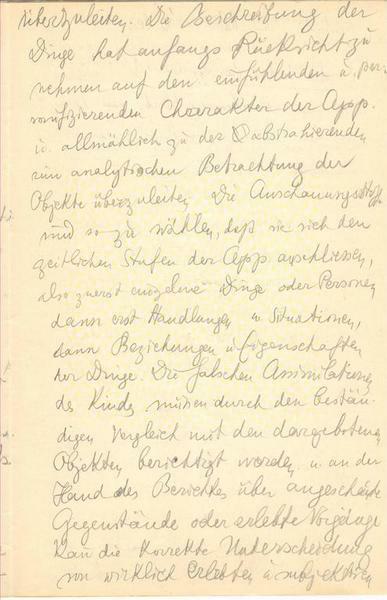 überzuleiten. Die Beschreibung der
Dinge hat anfangs Rücksicht zu
nehmen auf den einfühlenden u. per-
sonifizierenden Charakter der App.
u. allmählich zu der abstrahierenden
rein analytischen Betrachtung der
Objekte überzuleiten. Die Anschauungsstoffe
sind so zu wählen, daß sie sich den
zeitlichen Stufen der App anschliessen,
also zuerst einzelne Dinge oder Personen
dann erst Handlungen u Situationen,
dann Beziehungen u Eigenschaften
der Dinge. Die falschen Assimilationen
des Kindes müssen durch den bestän-
digen Vergleich mit den dargebotenen
Objekten berichtigt werden u. an der
Hand des Berichtes über angeschaute
Gegenstände oder erlebte Vorgänge
kann die korrekte Unterscheidung
von wirklich Erlebten u subjektiven